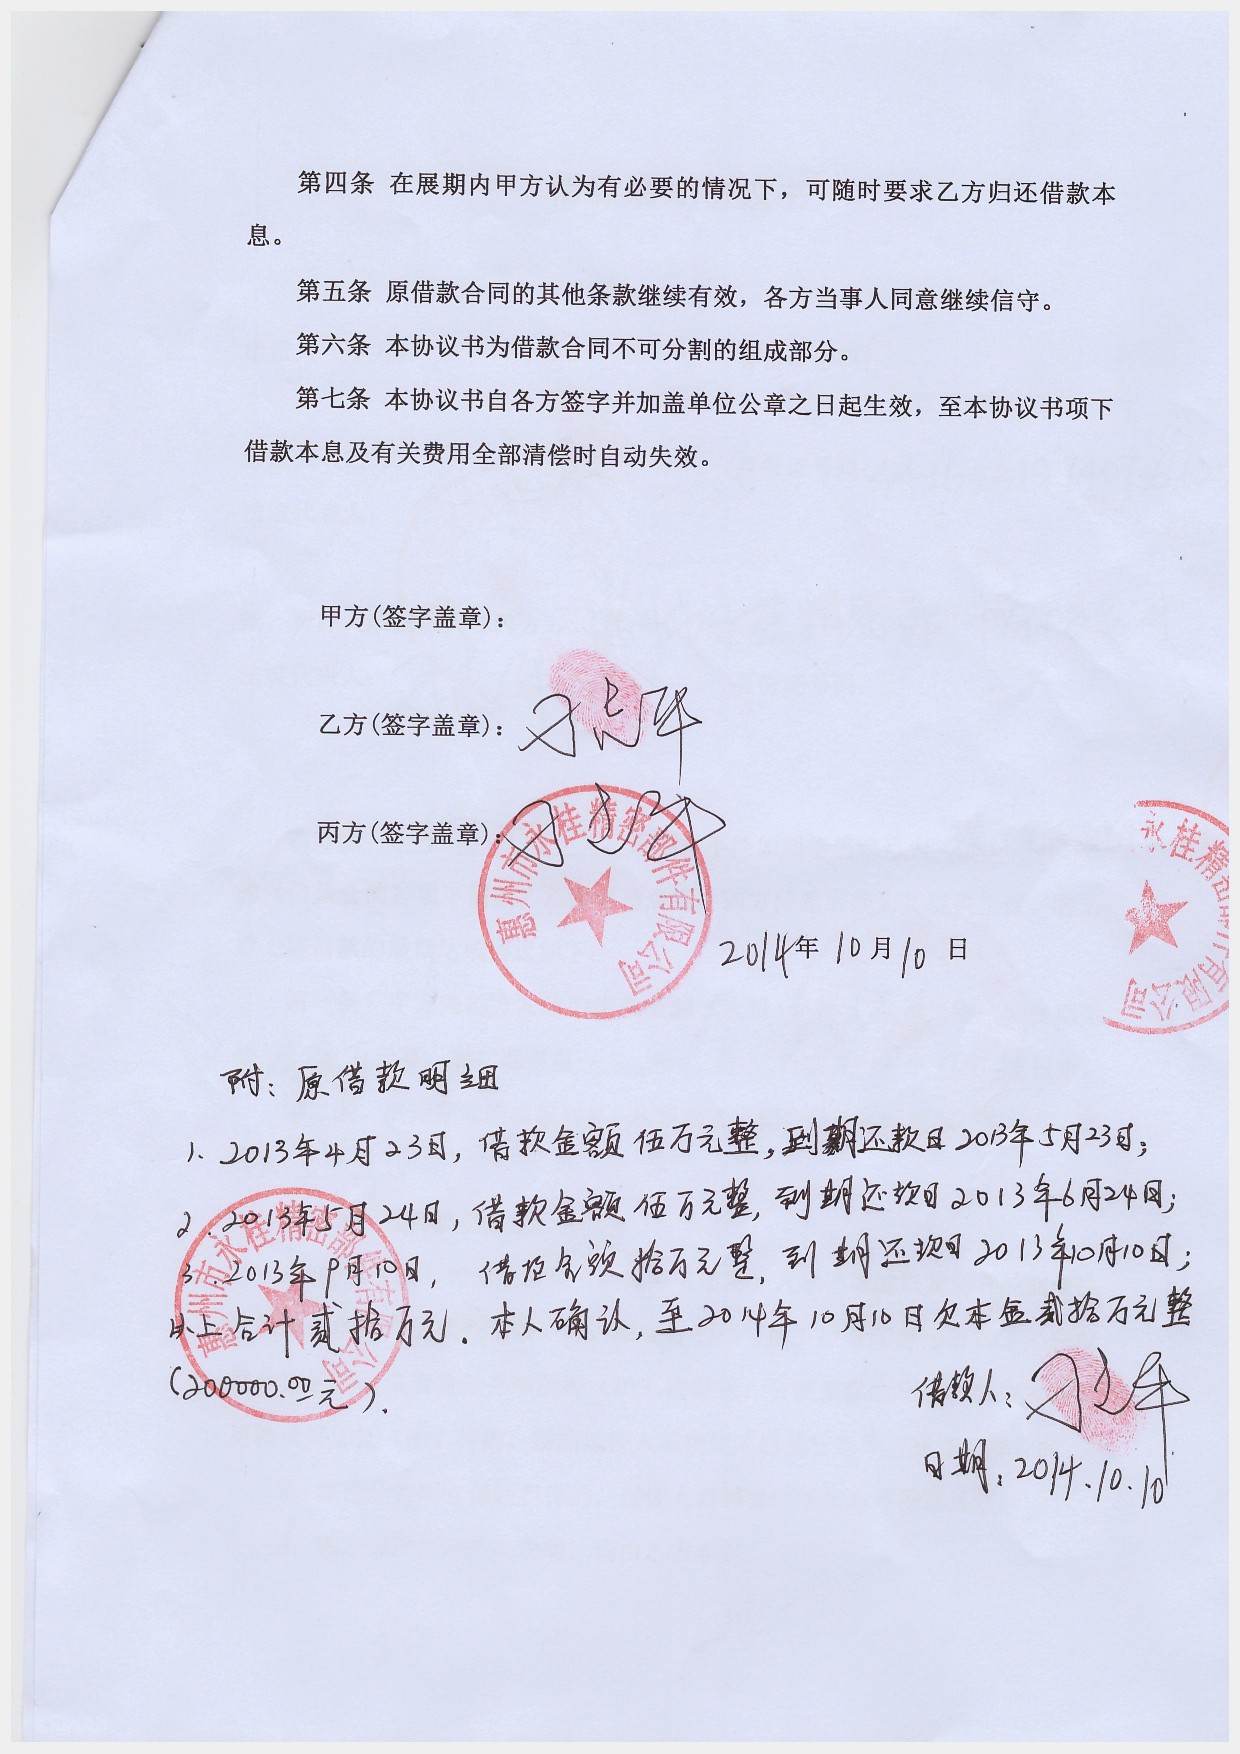 第四条 在展期内甲方认为有必要的情况下，可随时要求乙方归还借款本
息。
第五条 原借款合同的其他条款继续有效，各方当事人同意继续信守。
第六条 本协议书为借款合同不可分割的组成部分。
第七条 本协议书自各方签字并加盖单位公章之日起生效，至本协议书项下
借款本息及有关费用全部清偿时自动失效。
甲方(签字盖章)：
乙方(签字盖章)：
丙方(签字盖章)：
惠州市永桂精密部件有限公司
永桂精密部件有限公司
2014年10月10日
附：原借款明细
1、2013年4月23日，借款金额伍万元整，到期还款日2013年5月23日；
2、2013年5月24日，借款金额伍万元整，到期还款日2013年6月24日；
3、2013年9月10日，借款金额拾万元整，到期还款日2013年10月10日；
以上合计贰拾万元。本人确认，至2014年10月10日欠本金贰拾万元整
(200000.00元)．
惠州市永桂精密部件有限公司
借款人：
日期：2014.10.10